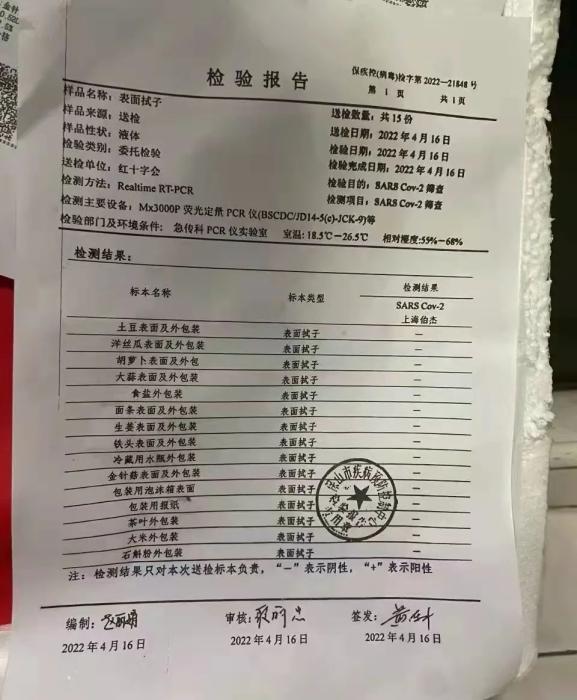 检验报告
保疾控(病毒)检字第 2022—21848 号
第 1 页 共 1 页
样品名称：表面拭子
送检数量：共 15 份
样品来源：送检
送检日期：2022 年 4 月 16 日
样品性状：液体
检验日期：2022 年 4 月 16 日
检验类别：委托检验
检验完成日期：2022 年 4 月 16 日
送检单位：红十字会
检验目的：SARS Cov-2 筛查
检测方法：Realtime RT-PCR
检测项目：SARS Cov-2 筛查
检测主要设备：Mx3000P 荧光定量 PCR 仪(BSCDC/JD14-5(c)-JCK-9)等
检验部门及环境条件：急传科 PCR 仪实验室 室温：18.5℃—26.5℃ 相对湿度：55%—68%
检测结果：
标本名称 标本类型 检测结果
SARS Cov-2
上海伯杰
土豆表面及外包装 表面拭子 —
洋丝瓜表面及外包装 表面拭子 —
胡萝卜表面及外包 表面拭子 —
大蒜表面及外包装 表面拭子 —
食盐外包装 表面拭子 —
面条表面及外包装 表面拭子 —
生姜表面及外包装 表面拭子 —
铁头表面及外包装 表面拭子 —
冷藏用水瓶外包装 表面拭子 —
金针菇表面及外包装 表面拭子 —
包装用泡沫箱表面 表面拭子 —
包装用报纸 表面拭子 —
茶叶外包装 表面拭子 —
大米外包装 表面拭子 —
石斛粉外包装 表面拭子 —
注：检测结果只对本次送检标本负责，“—”表示阴性，“+”表示阳性
编制： 审核： 签发：
2022 年 4 月 16 日 2022 年 4 月 16 日 2022 年 4 月 16 日